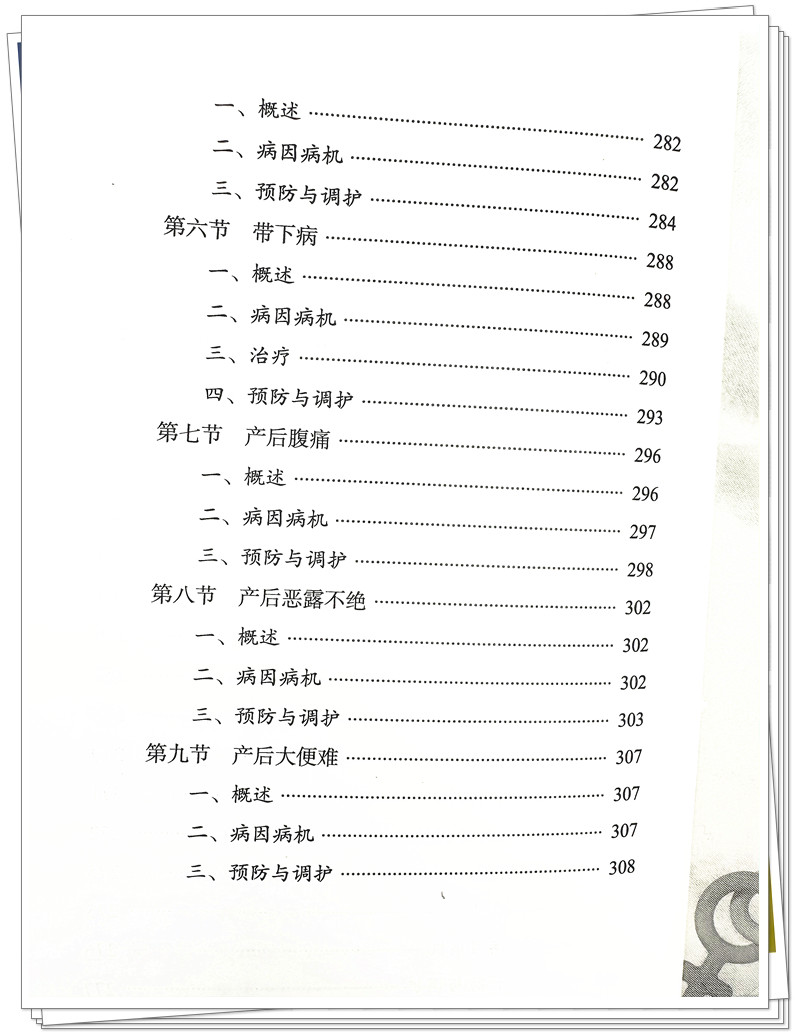 一、概述 …………………………………………… 282
二、病因病机 …………………………………………… 282
三、预防与调护 …………………………………………… 284
第六节 带下病 …………………………………………… 288
一、概述 …………………………………………… 288
二、病因病机 …………………………………………… 289
三、治疗 …………………………………………… 290
四、预防与调护 …………………………………………… 293
第七节 产后腹痛 …………………………………………… 296
一、概述 …………………………………………… 296
二、病因病机 …………………………………………… 297
三、预防与调护 …………………………………………… 298
第八节 产后恶露不绝 …………………………………………… 302
一、概述 …………………………………………… 302
二、病因病机 …………………………………………… 302
三、预防与调护 …………………………………………… 303
第九节 产后大便难 …………………………………………… 307
一、概述 …………………………………………… 307
二、病因病机 …………………………………………… 307
三、预防与调护 …………………………………………… 308